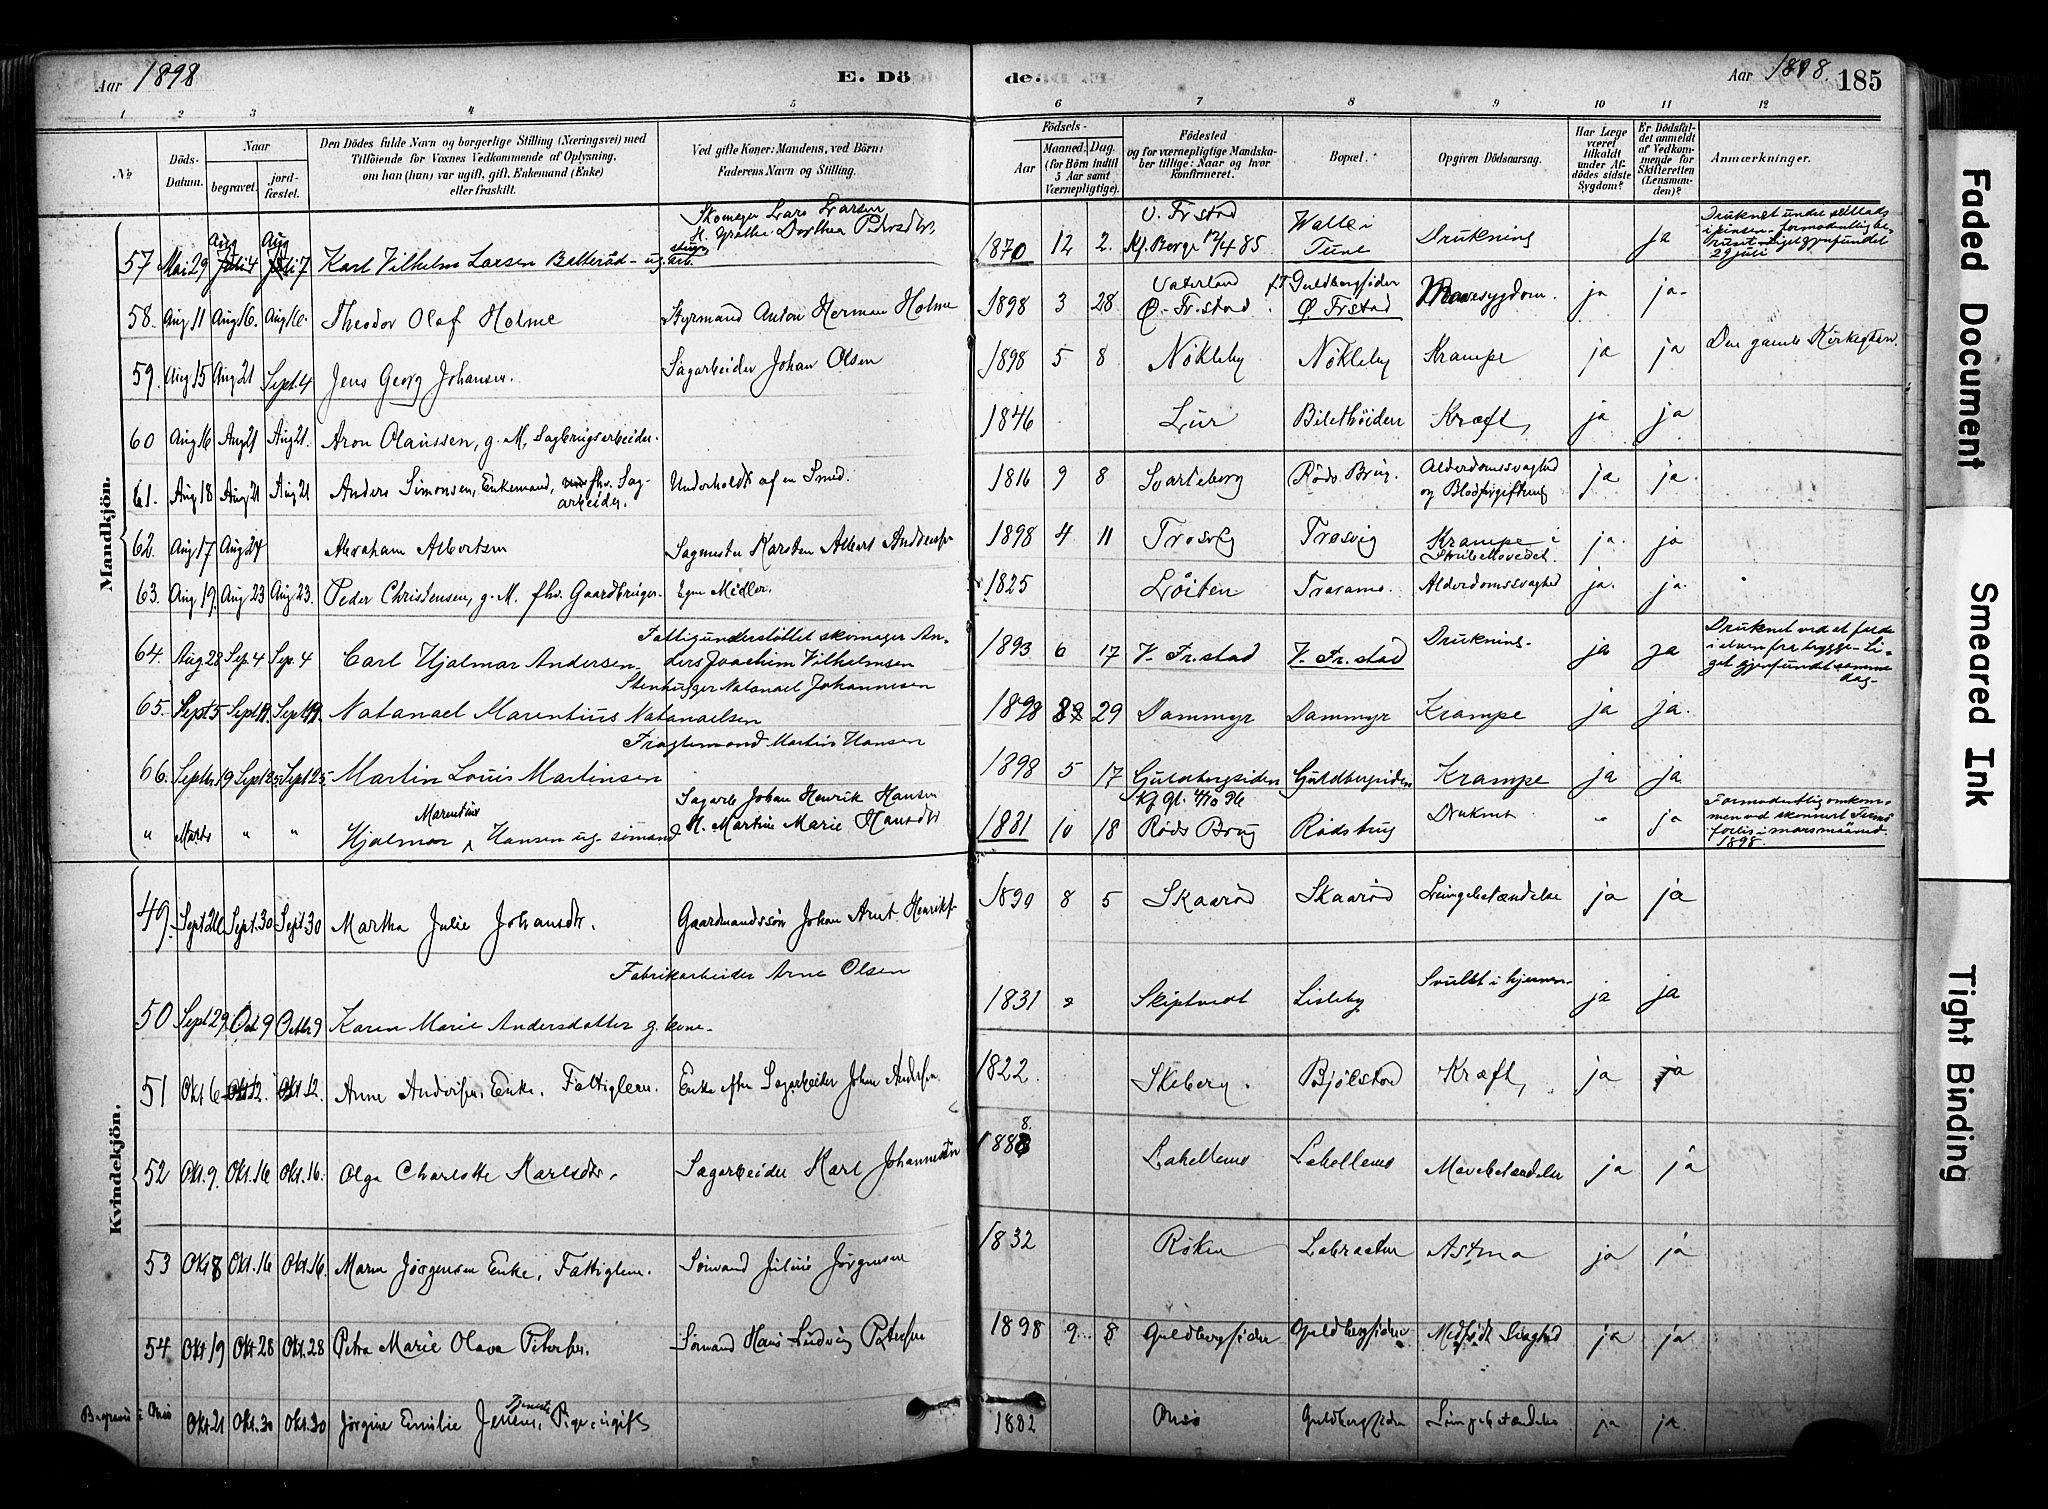 Aar 1898
E. Dö
de.
Aar 1898.
185
1 2 3 4 5 6 7 8 9 10 11 12
№
Döds-Datum.
Naar
begravet.
jordfæstet.
Den Dödes fulde Navn og borgerlige Stilling (Næringsvei) med
Tilföiende for Voxnes Vedkommende af Oplysning,
om han (hun) var ugift, gift, Enkemand (Enke)
eller fraskilt.
Ved gifte Koner: Mandens, ved Börn:
Faderens Navn og Stilling.
Födsels-
Aar
Maaned. Dag.
(for Börn indtil
5 Aar samt
Værnepligtige).
Födested
og for værnepligtige Mandska-
ber tillige: Naar og hvor
konfirmeret.
Bopæl.
Opgiven Dödsaarsag.
Har Læge
været
tilkaldt
under Af-
dödes sidste
Sygdom?
Er Dödsfal-
det anmeldt
af Vedkom-
mende for
Skifteretten
(Lensman-
den)?
Anmærkninger.
Mandkjön.
Skomager Lars Larsen
H. Grethe Dorthea Pedersdtr.
57 Mai 29 Aug 4 Aug 7 Karl Vilhelm Larsen Balleröd - ug. arb. 1870 12 2. V. Frstad Kf. Borge 12/4 85 Walle i Tune Drukning ja
58. Aug 11 Aug 16. Aug 16. Theodor Olaf Holme Styrmand Anton Herman Holme 1898 3 28 Vaterland Ø. Fr.stad. Guldbergsiden Ø. Frstad Mavesygdom. ja ja
59. Aug 15 Aug 21 Sept. 4 Jens Georg Johansen. Sagarbeider Johan Olsen 1898 5 8 Nökleby Nökleby Krampe ja ja Den gamle Kirkegård.
60 Aug 16 Aug 21 Aug 21. Aron Olaussen, g. M, Sagbrugsarbeider. 1846 Lur Kræft, ja ja
61. Aug 18 Aug 21 Aug 21 Anders Simonsen, Enkemand, fhv. Sagarbeider. Underholdt af en Smed. 1816 9 8 Svarteborg Röds Brug. Alderdomssvaghed og Blodforgiftning ja ja.
62. Aug 17 Aug 24 Abraham Albertsen Sagmester Karsten Albert Andersen 1898 4 11 Trosvig Trosvig Krampe i Strubehovedet. ja ja
63. Aug 19. Aug 23 Aug 23. Peder Christensen, g. M. fhv. Gaardbruger. Egne Midler. 1825 Löiten Trosvig Alderdomssvaghed ja. ja.
64. Aug 28 Sep. 4 Sep. 4 Carl Hjalmar Andersen Fattigunderstöttet skomager Anders Joachim Vilhelmsen 1893 6 17 V. Fr.stad V. Fr.stad Drukning. ja ja Druknet ved at falde i elven fra brygge. Liget gjenfundet samme dag.
65. Sept 5 Sept 11. Sept 11. Natanael Marentius Natanaelsen Stenhugger Natanael Johannesen 1898 8 29 Dammyr Dammyr Krampe ja ja.
66. Septbr 19 Sept 25. Sept 25. Martin Louis Martinsen Fragtemand Martin Hansen 1898 5 17 Guldbergsiden Guldbergsiden Krampe ja ja.
" Marts " " Hjalmar Marentius Hansen ug. sömand Sagarb. Johan Henrik Hansen H. Martine Marie Hansdtr 1881 10 18 Kf. Gl. 4/10 96 Röds Brug Rödsbrug Druknet " ja Formodentlig omkommen ved skonnert i marsmåned 1898.
Kvindekjön.
49. Sept 26 Sept. 30 Sept. 30 Martha Julie Johansdtr. Gaardmandssön Johan Arnt Henriks. 1890 8 5 Skaaröd Skaaröd Lungebetændelse ja ja
50 Sept 29 Oct 9 Octbr 9 Karen Marie Andersdatter g. kone. Fabrikarbeider Arne Olsen 1831 Skiptvedt Lisleby Svulst i hjernen. ja ja
51 Okt 6 Okt 12. Okt 12. Anne Andersen, Enke, Fattiglem. Enke efter Sagarbeider Johan Andersen. 1822. Skeberg. Bjölstad Kræft, ja ja
52 Okt. 9. Okt. 16 Okt. 16. Olga Charlotte Karlsdtr. Sagarbeider Karl Johannessen 1888 Lahellemo Lahellemo Mavebetændelse ja ja
53 Okt 8 Okt. 16 Okt. 16. Maren Jörgensen Enke, Fattiglem. Sömand Julius Jörgensen 1832 Röken Labraaten Astma ja ja
54 Okt 19 Okt 28 Okt. 28 Petra Marie Olava Petersen. Sömand Hans Ludvig Petersen 1898 9. 8 Guldbergsiden Guldbergsiden Medfödt Svaghed ja ja
Begravet i Onsö Okt. 21 Okt. 30 Okt. 30 Jörgine Emilie Jensen, Pige, ugift 1882 Onsö Guldbergsiden Lungebetændelse ja ja.
Faded Document
Smeared Ink
Tight Binding